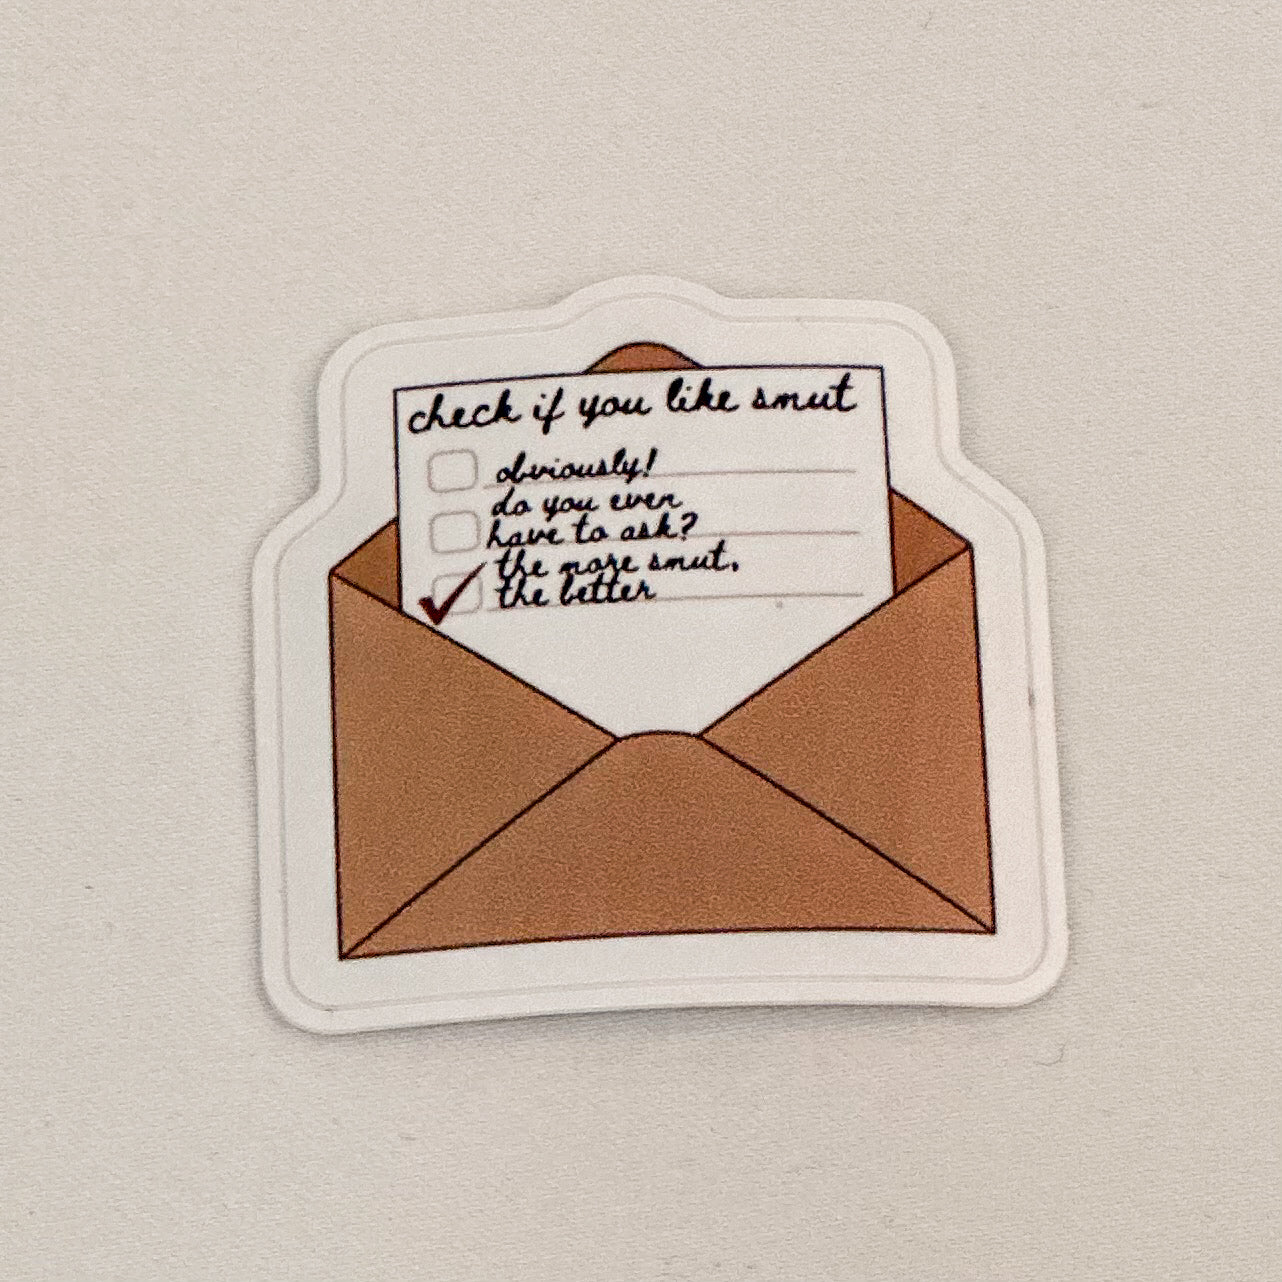 check if you like smut
obviously!
do you even
have to ask?
the more smut,
the better